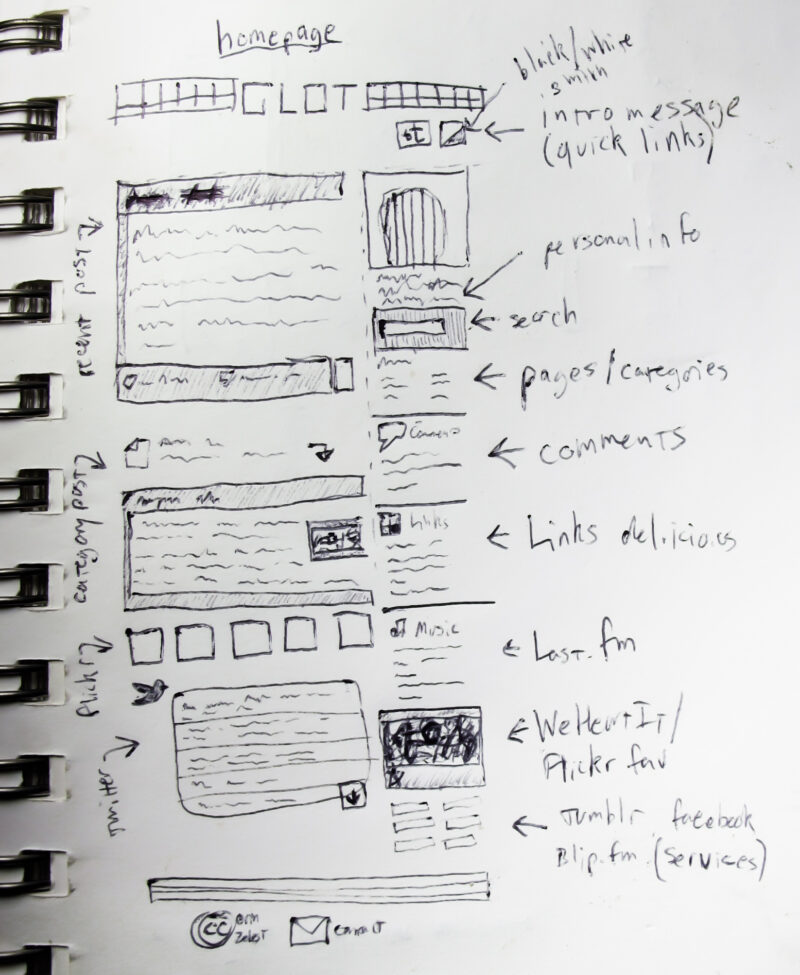 homepage
black/white
switch
GLOT
intro message
(quick links)
tt
recent post
personal info
search
pages/categories
Comments
comments
category post
Links
Links delicioies
flickr
Music
Last.fm
WeHeartIt/
flickr fav
Twitter
Tumblr facebook
Blip.fm (services)
cc
contact